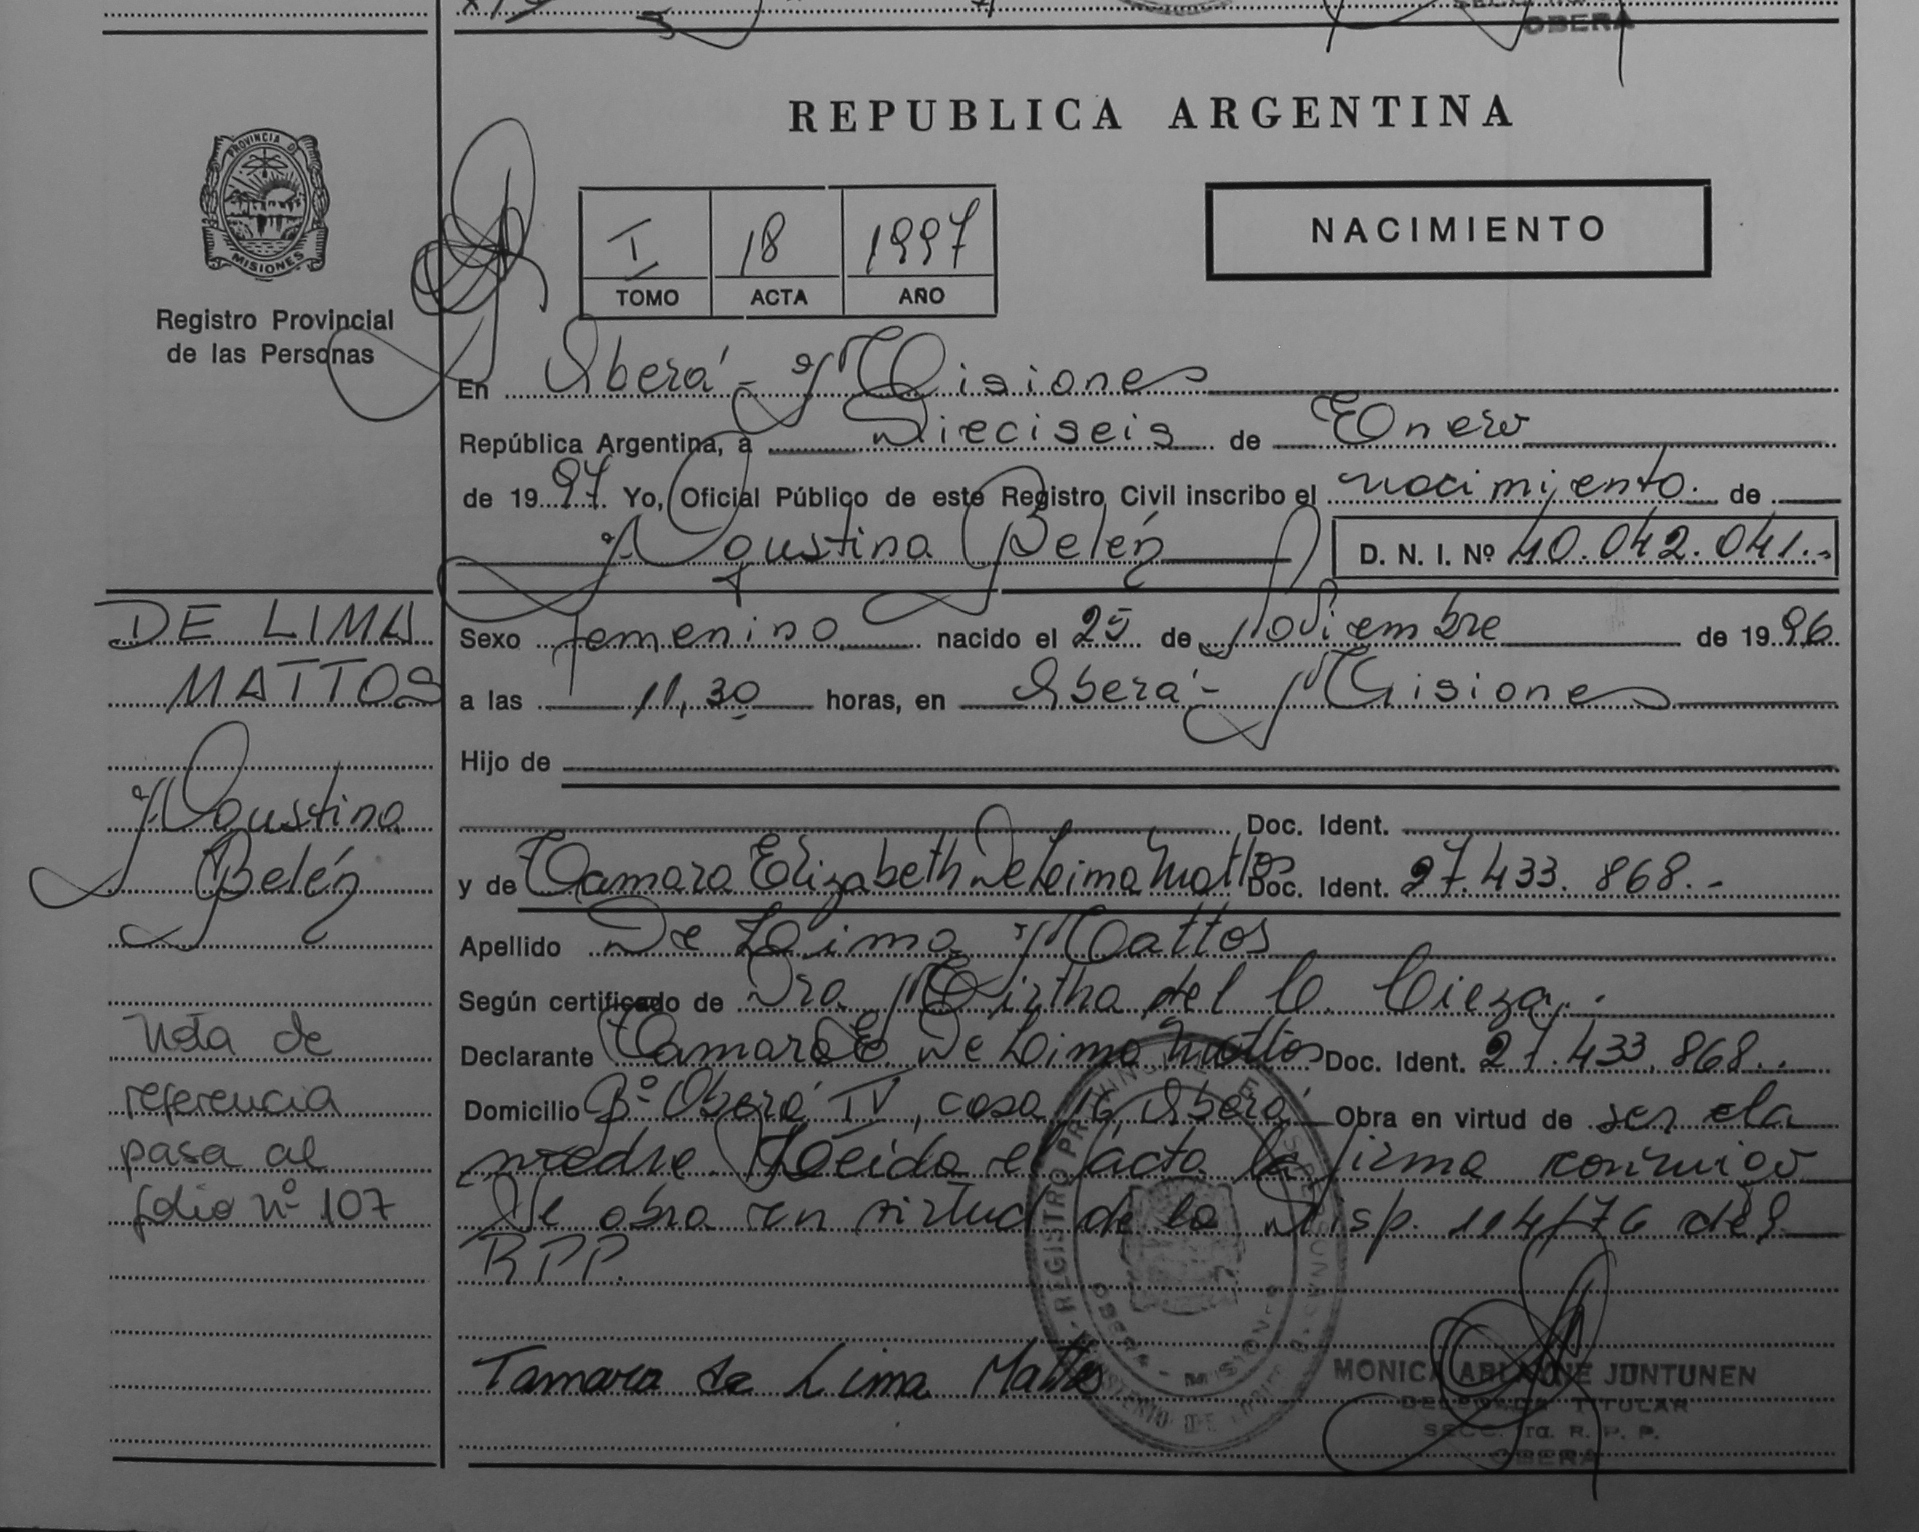 OBERA
REPUBLICA ARGENTINA
PROVINCIA DE
MISIONES
Registro Provincial
de las Personas
I 18 1997
TOMO ACTA AÑO
NACIMIENTO
En Oberá - Misiones
República Argentina, a Dieciseis de Enero
de 1997. Yo, Oficial Público de este Registro Civil inscribo el nacimiento de
Agustina Belén D. N. I. Nº 40.042.041.-
DE LIMA
MATTOS
Agustina
Belén
Nota de
referencia
pasa al
folio nº 107
Sexo femenino nacido el 25 de Noviembre de 1996
a las 11,30 horas, en Oberá - Misiones
Hijo de
Doc. Ident.
y de Tamara Elizabeth De Lima Mattos Doc. Ident. 27.433.868.-
Apellido De Lima Mattos
Según certificado de Dra. Mirtha del C. Cieza.
Declarante Tamara E. De Lima Mattos Doc. Ident. 27.433.868..
Domicilio Bº Oberá IV, casa 16, Oberá Obra en virtud de ser la
madre. Leída el acta la firma conmigo
Se obra en virtud de la Disp. 114/76 del
RPP.
Tamara de Lima Mattos
REGISTRO PROVINCIAL DE LAS PERSONAS
OBERA - MISIONES
MONICA ARIANNE JUNTUNEN
DELEGADA TITULAR
SECC. 1ra. R. P. P.
OBERA